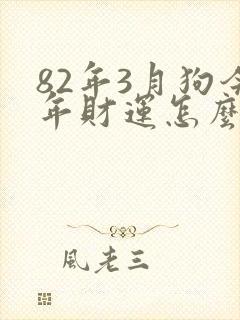 82年3月狗今
年財運怎麼
風老三